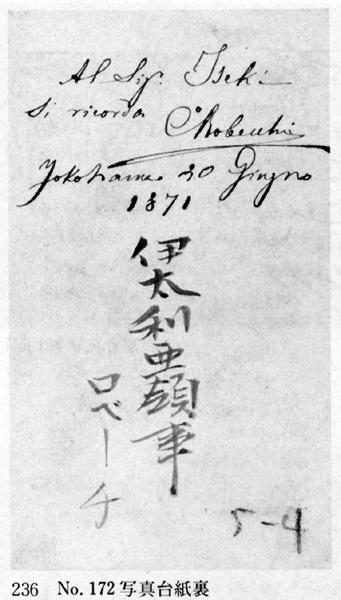 Al Sig. Iseki
Si ricorda CRobecchi
Yokohama 20 Giugno
1871
伊太利亜領事
ロベーチ
5-4
236 No.172写真台紙裏